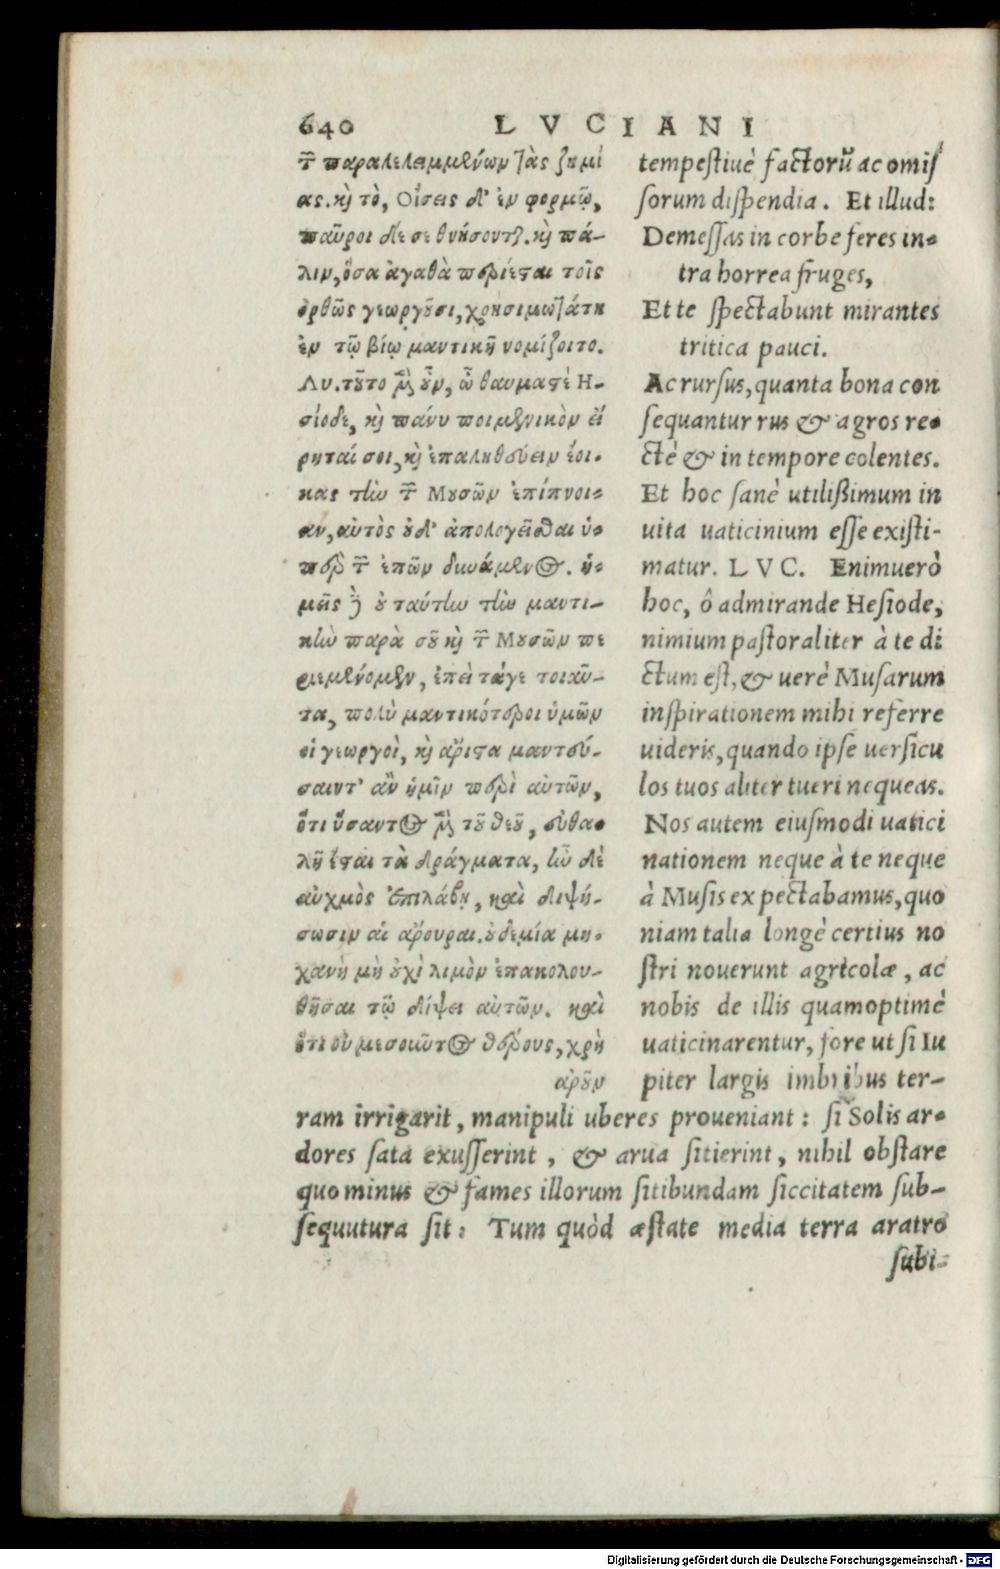 640 LVCIANI
τῶν παραλελειμμένων τὰς ζημί
ας. καὶ τὸ, Οἴσεις δ' ἐν φορμῷ,
παῦροι δέ σε θνήσονται. καὶ πά-
λιν, ὅσα ἀγαθὰ περιέσται τοῖς
ὀρθῶς γεωργοῦσι, χρησιμωτάτη
ἐν τῷ βίῳ μαντικὴ νομίζοιτο.
Λυ. τοῦτο μὲν οὖν, ὦ θαυμαστὲ Ἡ-
σίοδε, καὶ πάνυ ποιμενικὸν εἴ
ρηταί σοι, καὶ ἐπαληθεύειν ἔοι-
κας τὴν τῶν Μουσῶν ἐπίπνοι-
αν, αὐτὸς οὐδ' ἀπολογεῖσθαι ὑ-
πὲρ τῶν ἐπῶν δυνάμενος. ἡ-
μεῖς δὲ οὐ ταύτην τὴν μαντι-
κὴν παρὰ σοῦ καὶ τῶν Μουσῶν πε
ριεμένομεν, ἐπεὶ τάγε τοιαῦ-
τα, πολὺ μαντικότεροι ὑμῶν
οἱ γεωργοὶ, καὶ ἄριστα μαντεύ-
σαιντ' ἂν ἡμῖν περὶ αὐτῶν,
ὅτι ὕσαντος μὲν τοῦ θεοῦ, εὐθα-
λῆ ἔσται τὰ δράγματα, ἢν δὲ
αὐχμὸς ἐπιλάβῃ, καὶ διψή-
σωσιν αἱ ἄρουραι. οὐδεμία μη-
χανὴ μὴ οὐχὶ λιμὸν ἐπακολου-
θῆσαι τῷ δίψει αὐτῶν. καὶ
ὅτι οὐ μεσοῦντος θέρους, χρὴ
ἀροῦν
tempestiuè factorũ ac omis
sorum dispendia. Et illud:
Demessas in corbe feres in-
tra horrea fruges,
Et te spectabunt mirantes
tritica pauci.
Ac rursus, quanta bona con
sequantur rus & agros re-
ctè & in tempore colentes.
Et hoc sanè utilißimum in
uita uaticinium esse existi-
matur. LVC. Enimuerò
hoc, ô admirande Hesiode,
nimium pastoraliter à te di
ctum est, & uerè Musarum
inspirationem mihi referre
uideris, quando ipse uersicu
los tuos aliter tueri nequeas.
Nos autem eiusmodi uatici
nationem neque à te neque
à Musis expectabamus, quo
niam talia longè certius no
stri nouerunt agricolæ, ac
nobis de illis quamoptimè
uaticinarentur, fore ut si Iu
piter largis imbribus ter-
ram irrigarit, manipuli uberes proueniant: si Solis ar-
dores sata exusserint, & arua sitierint, nihil obstare
quo minus & fames illorum sitibundam siccitatem sub-
sequutura sit: Tum quòd æstate media terra aratro
subi-
Digitalisierung gefördert durch die Deutsche Forschungsgemeinschaft - DFG